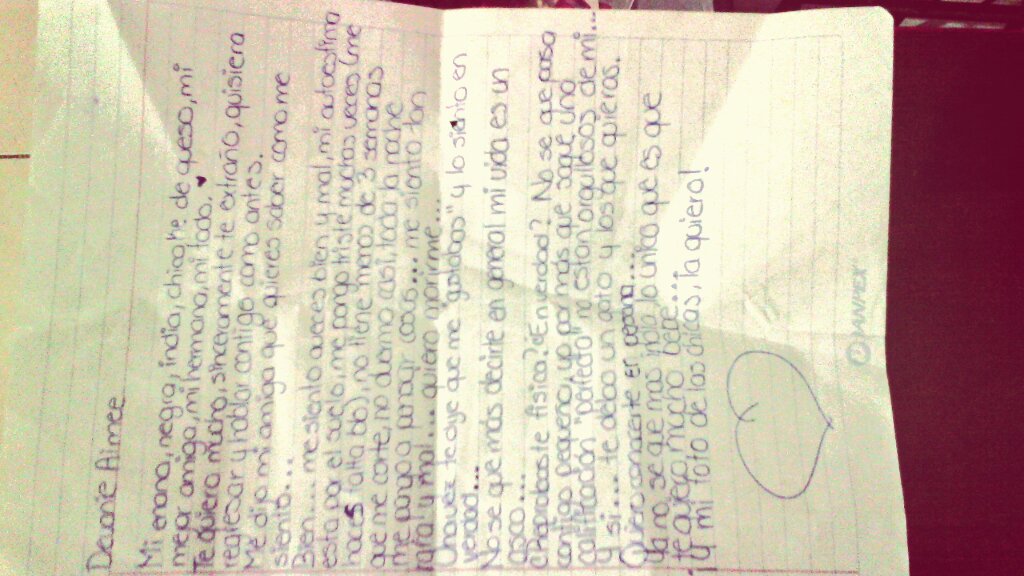 De: Joanie Aimee
Mi enana, negra, india, chica he de queso, mi
mejor amiga, mi hermana, mi todo. ♥
Te quiero mucho, sinceramente te extraño, quisiera
regresar y hablar contigo como antes.
Me dijo mi amiga que quieres saber como me
siento...
Bien... me siento aveces bien y mal, mi autoestima
esta por el suelo, me pongo triste muchas veces (me
haces falta tb), no tiene menos de 3 semanas
que me corte, no duermo casi, toda la noche
me pongo a pensar cosas... me siento tan
rara y mal... quiero morirme...
Una vez te dije que me gustabas" y lo siento en
verdad...
No se que más decirte en general mi vida es un
asco...
¿Reprobaste fisica? ¿En verdad? No se que pasa
contigo pequeña, yo por más que saque una
calificación "perfecta" no estan orgullosos de mi...
y si.... te debo un dato y los que quieras.
Quiero conocerte er
Ya no se que mas inda lo unico que es que
te quiero mucho bebé...
¡y mi foto de las chicas, la quiero!
MANPER